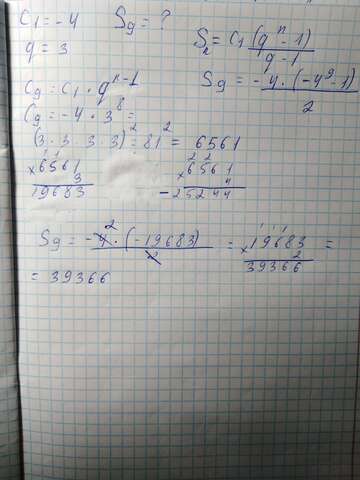 C₁ = -4   S₉ = ?
q = 3
Sₙ = C₁ (qⁿ - 1) / q - 1
C₉ = C₁ · qⁿ⁻¹
S₉ = -4 · (-4⁹ - 1) / 2
C₉ = -4 · 3⁸ =
(3 · 3 · 3 · 3)² = 81² = 6561
× 6561 3
19683
× 6561 4
-25244
S₉ = -4 · (-19683) / 2 = × 19683 2 =
39366
= 39366